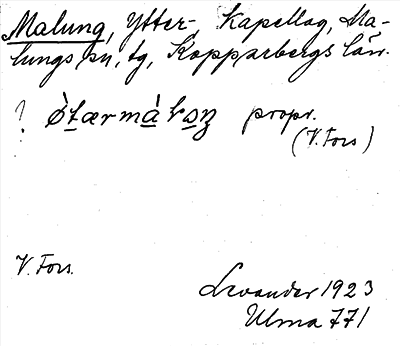 Malung, Ytter-, Kapellag, Ma-
lungs sn, tg, Kopparbergs län.
? propr.
(V. Fors)
V. Fors.
Levander 1923
Ulma 771